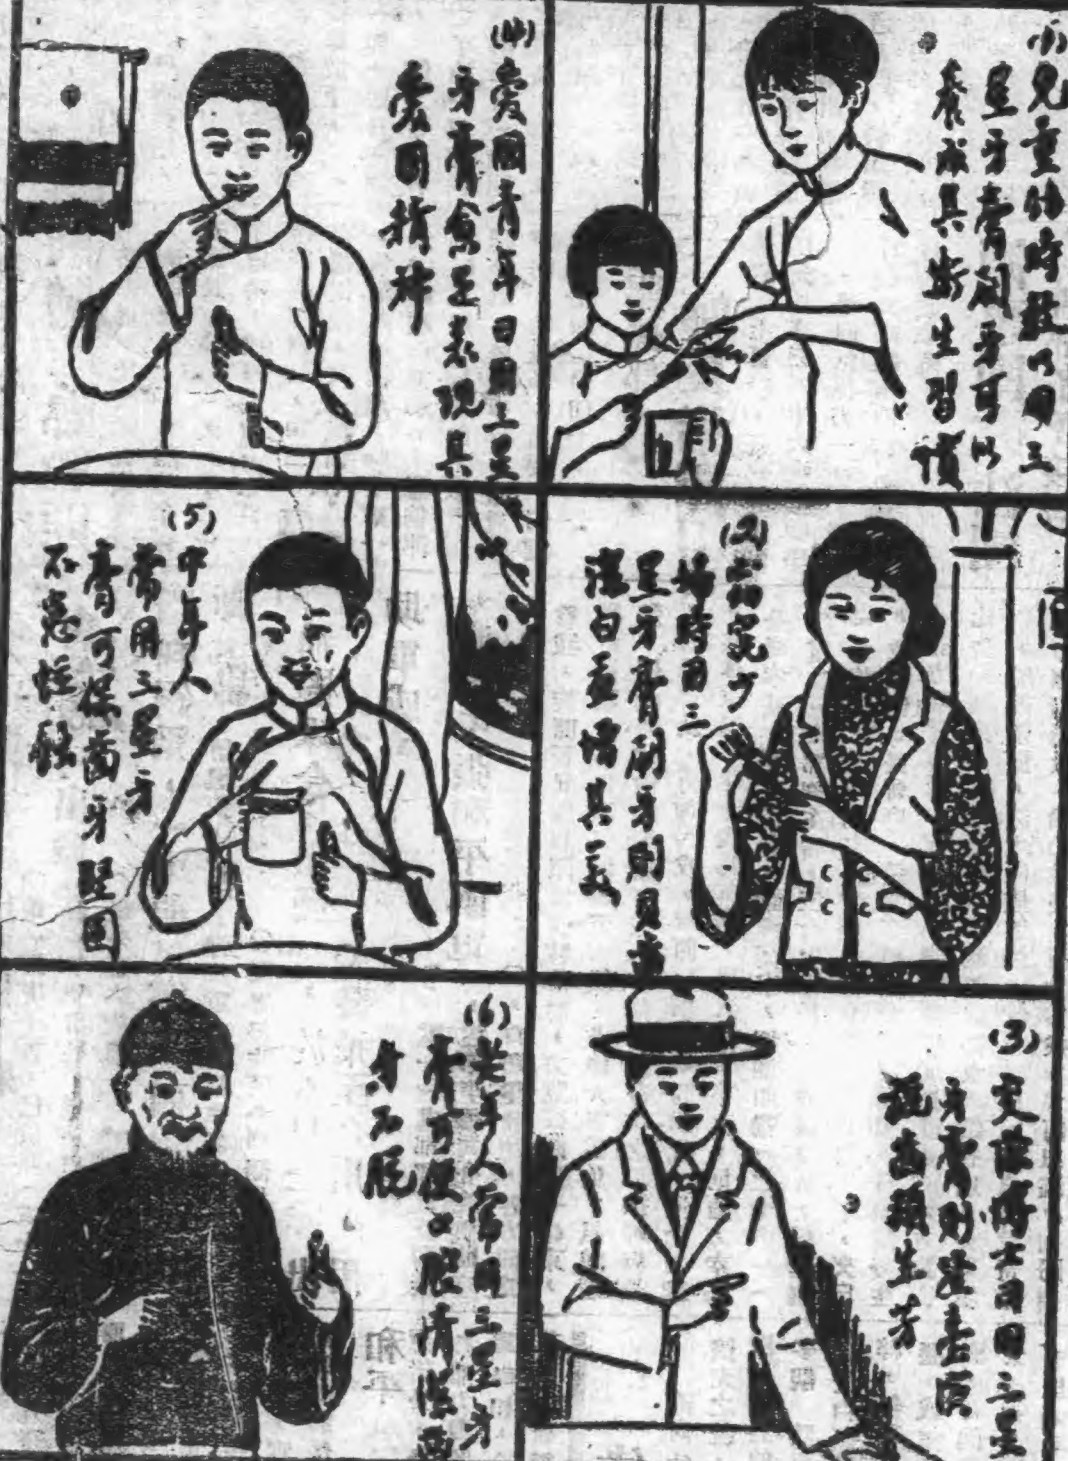 (1)兒童幼時教以用三
星牙膏刷牙可以
養成其衛生習慣
(2)
場時用三
星牙膏刷牙則貝齒
潔白益增其美
(3)
交際博士日用三星
牙膏則登臺演
說齒頰生芳
(4)愛國青年日用三星
牙膏愈足表現其
愛國精神
(5)中年人
常用三星牙
膏可保齒牙堅固
不患怪蝕
(6)老年人常用三星牙
膏可使口腔清潔齒
牙不脫